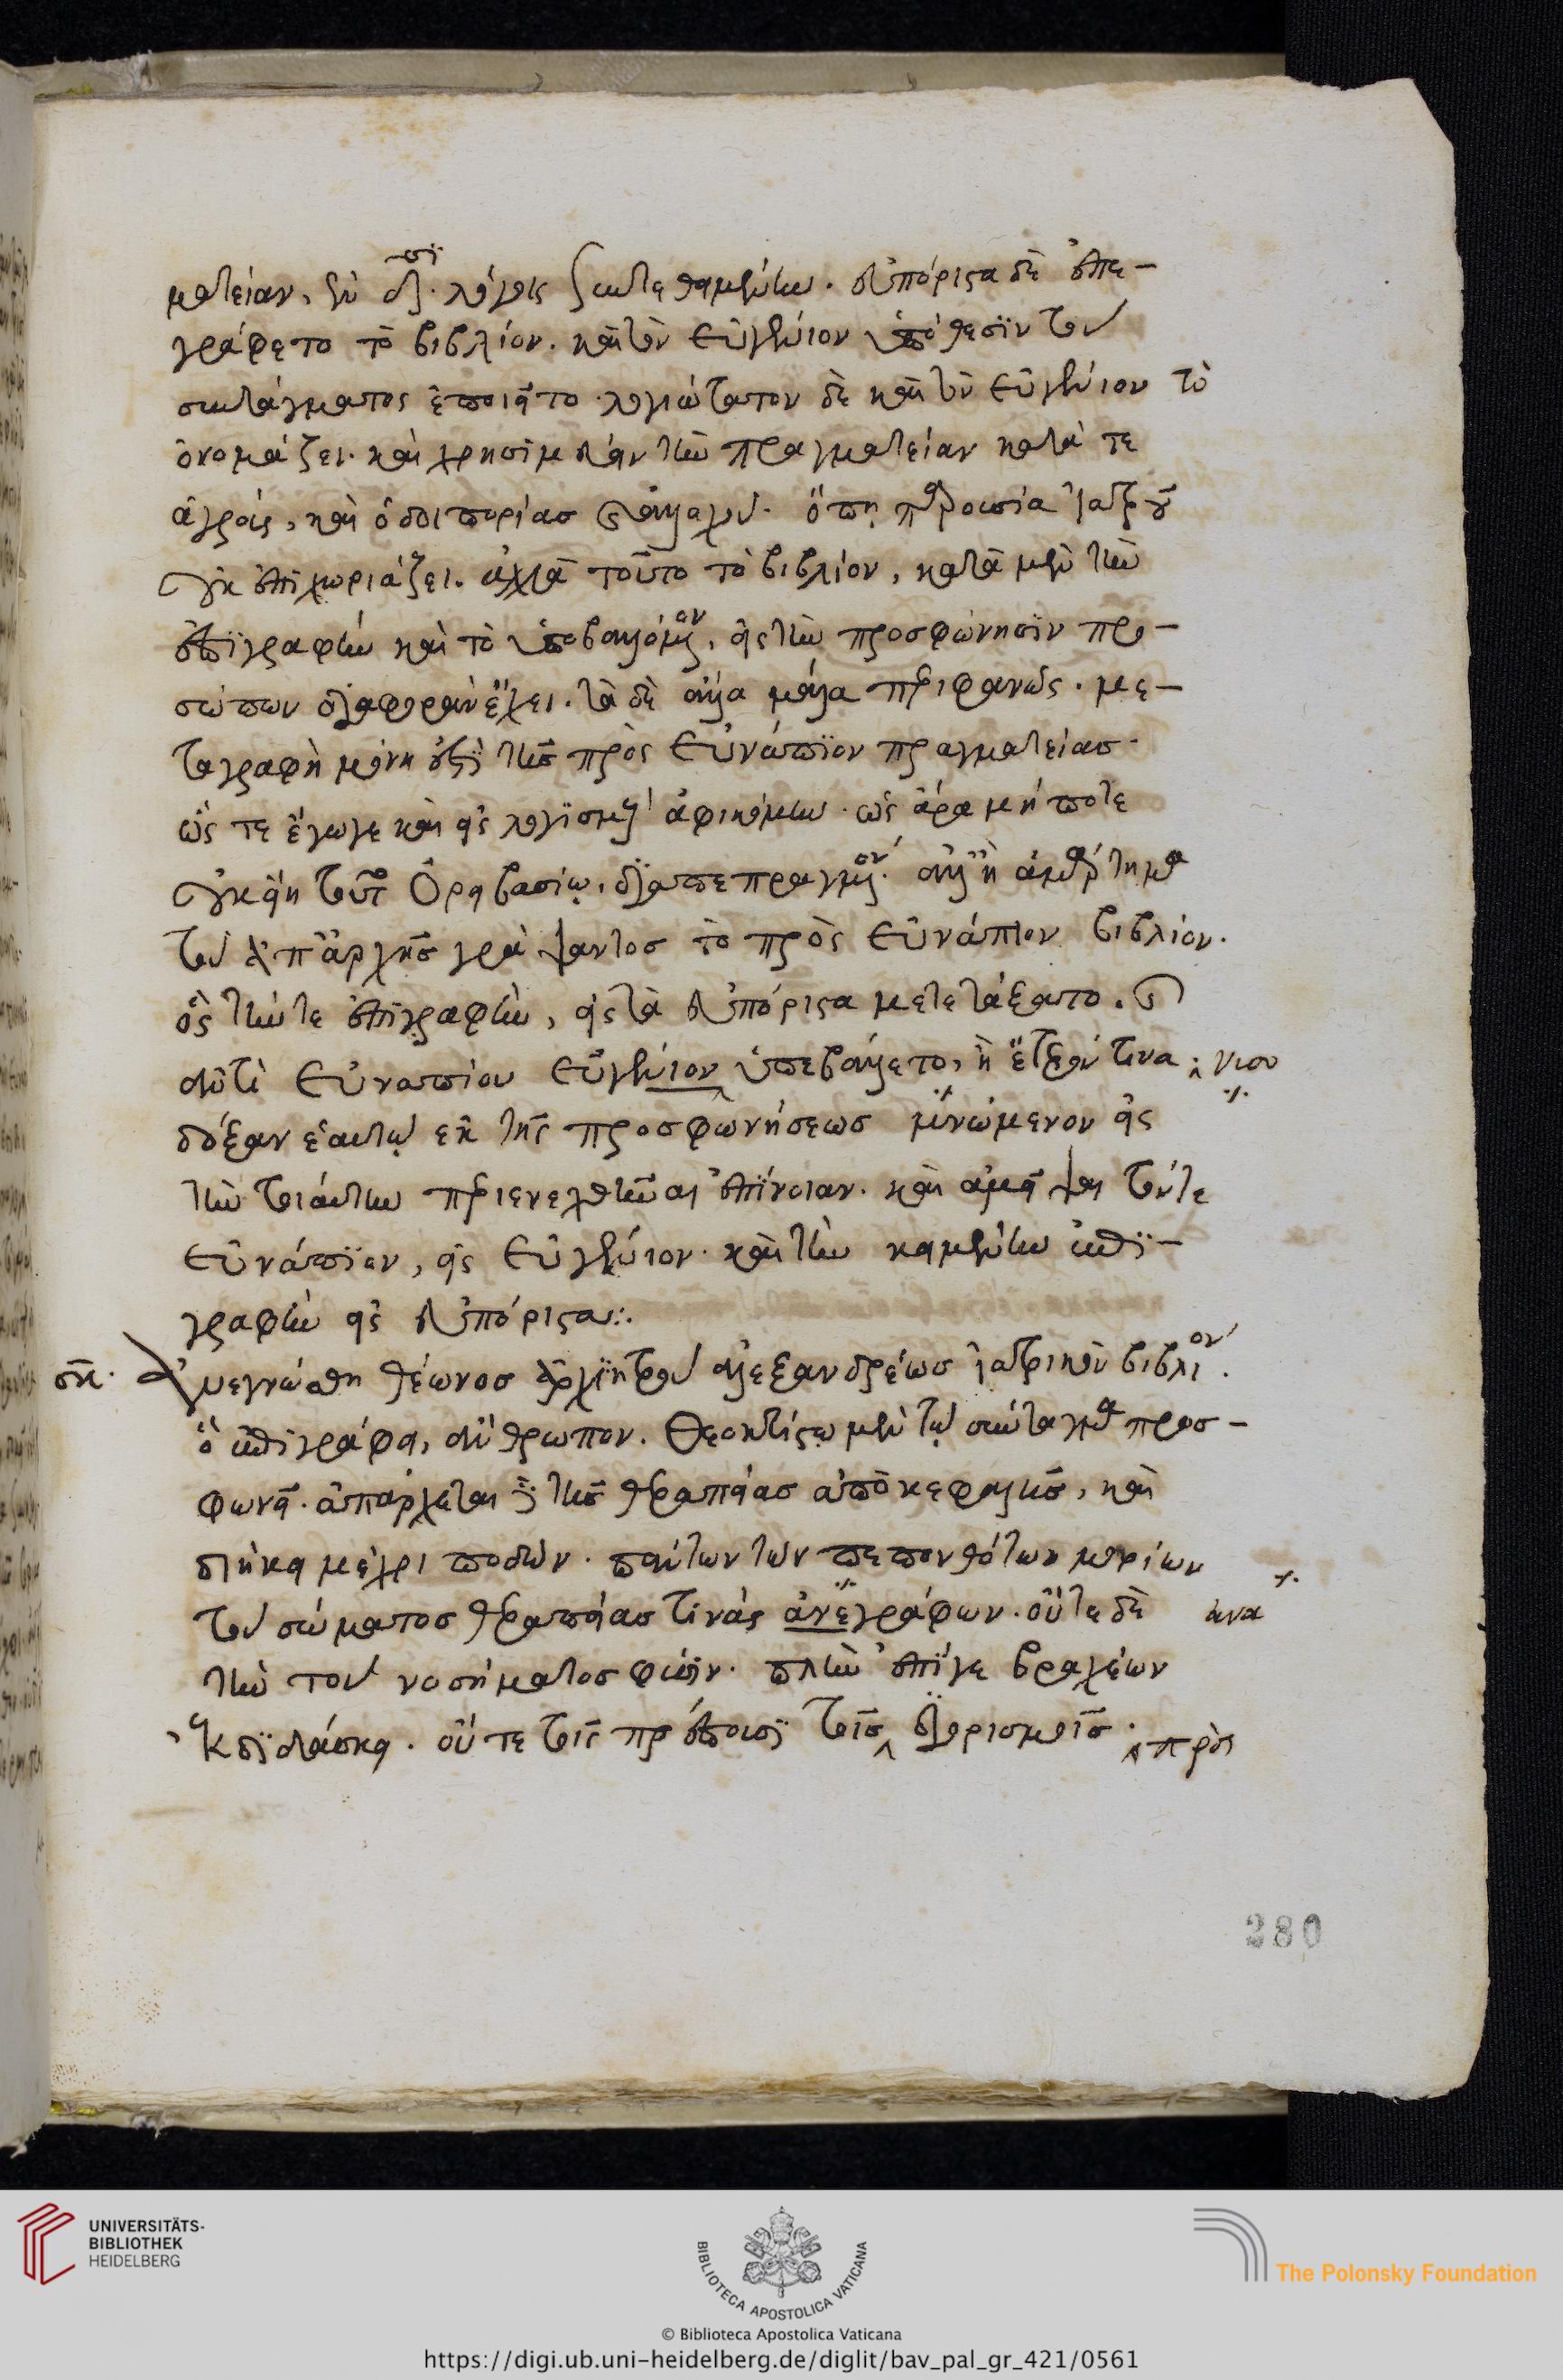 ματείαν, ἐν δ λόγοις συντεθειμένην. εὐπόριστα δὲ ἐπε-
γράφετο τὸ βιβλίον. καὶ τὸν εὐγένιον ὑπόθεσιν τοῦ
συντάγματος ἐποιεῖτο. λογιώτατον δὲ καὶ τὸν εὐγένιον τὸ
ὀνομάζει. καὶ χρησιμεύειν τὴν πραγματείαν κατά τε
ἀγροὺς, καὶ ὁδοιπορίας ἀλλαχοῦ. ὅπη παρουσία ἰατροῦ
οὐκ ἐπιχωριάζει. ἀλλὰ τοῦτο τὸ βιβλίον, κατὰ μὲν τὴν
ἐπιγραφὴν καὶ τὸ ὑποβαλλόμενον, εἰς τὴν προσφώνησιν προ-
σώπων διαφορὰν ἔχει. τὰ δὲ ἄλλα μάλα περιφανῶς. με-
ταγραφὴ μόνη ἐστὶ τῆς πρὸς εὐνάπιον πραγματείας.
ὥς τε ἔγωγε καὶ εἰς λογισμοὺς ἀφικόμην. ὡς ἄρα μή ποτε
οὐκ εἴη τοῦτο Ὀρειβασίῳ, διαπεπραγμένον. ἀλλ' ἢ ἁμάρτημα
τοῦ ἀπ' ἀρχῆς γράψαντος τὸ πρὸς εὐνάπιον βιβλίον.
ὃς τήν τε ἐπιγραφὴν, εἰς τὰ εὐπόριστα μετετάξατο.
ἀντὶ εὐναπίου εὐγένιον ὑπεβάλλετο, ἢ ἕτερόν τινα νιου
δόξαν ἑαυτῷ ἐκ τῆς προσφωνήσεως μνώμενον εἰς
τὴν τοιαύτην περιενεχθῆναι ἐπίνοιαν. καὶ ἀμεῖψαι τόν τε
εὐνάπιον, εἰς εὐγένιον. καὶ τὴν κειμένην ἐπι-
γραφὴν εἰς εὐπόριστα:.
σκ. Ἀνεγνώσθη θέωνος ἀρχιητροῦ ἀλεξανδρέως ἰατρικὸν βιβλίον.
ὃ ἐπιγράφει, ἄνθρωπον. Θεοκτίστῳ μὲν τῷ σύνταγμα προσ-
φωνεῖ. ἀπάρχεται δὲ τῆς θεραπείας ἀπὸ κεφαλῆς, καὶ
διήκει μέχρι ποδῶν. πάντων τῶν πεπονθότων μορίων
τοῦ σώματος θεραπείας τινάς ἀνεγράφων. οὔτε δὲ ἀνα
τὴν τοῦ νοσήματος φύσιν. πλὴν ἐπί γε βραχέων
ἐκδιδάσκει. οὔτε τοῖς πρέπουσι τοῖς διορισμοῖς. πρὸς
280
UNIVERSITÄTS-
BIBLIOTHEK
HEIDELBERG
BIBLIOTECA APOSTOLICA VATICANA
The Polonsky Foundation
© Biblioteca Apostolica Vaticana
https://digi.ub.uni-heidelberg.de/diglit/bav_pal_gr_421/0561